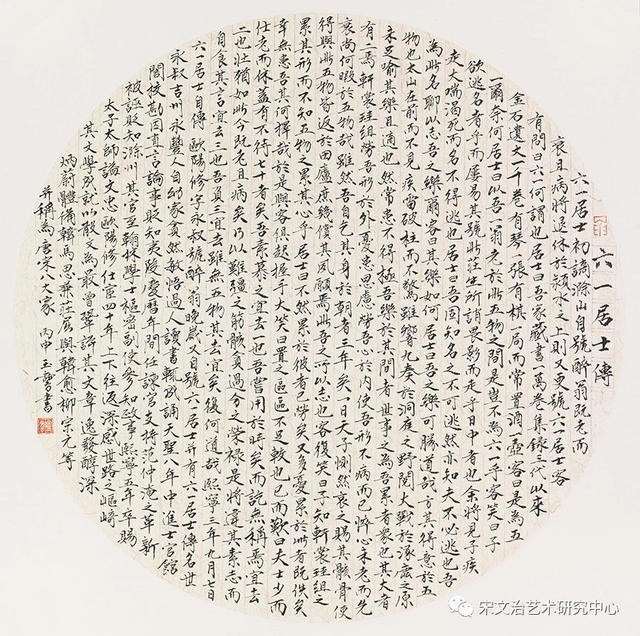 六一居士傳
六一居士初謫滁山自號醉翁既老而
衰且病將退休於潁水之上則又更號六一居士客
有問曰六一何謂也居士曰吾家藏書一萬卷集錄三代以來
金石遺文一千卷有琴一張有棋一局而常置酒一壺客曰是為五
一爾奈何居士曰以吾一翁老於此五物之間是豈不為六一乎客笑曰子
欲逃名者乎而屢易其號此莊生所誚畏影而走乎日中者也余將見子疾
走大喘渴死而名不得逃也居士曰吾固知名之不可逃然亦知夫不必逃也吾
為此名聊以志吾之樂爾客曰其樂如何居士曰吾之樂可勝道哉方其得意於五
物也太山在前而不見疾雷破柱而不驚雖響九奏於洞庭之野閱大戰於涿鹿之原
未足喻其樂且適也然常患不得極吾樂於其間者世事之為吾累者眾也其大者
有二焉軒裳珪組勞吾形於外憂患思慮勞吾心於內使吾形不病而已悴心未老而先
衰尚何暇於五物哉雖然吾自乞其身於朝者三年矣一日天子惻然哀之賜其骸骨使
得與此五物偕返於田廬庶幾償其夙願焉此吾之所以志也客復笑曰子知軒裳珪組之
累其形而不知五物之累其心乎居士曰不然累於彼者已勞矣又多憂累於此者既佚矣
幸無患吾其何擇哉於是與客俱起握手大笑曰置之區區不足較也已而歎曰夫士少而
仕老而休蓋有不待七十者矣吾素慕之宜去一也吾嘗用於時矣而訖無稱焉宜去
二也壯猶如此今既老且病矣乃以難強之筋骸貪過分之榮祿是將違其素志而
自食其言宜去三也吾負三宜去雖無五物其去宜矣復何道哉熙寧三年九月七日
六一居士自傳歐陽修字永叔號醉翁晚歲又自號六一居士并有六一居士傳名世
永叔吉州永豐人自幼家貧然敏悟過人讀書輒成誦天聖八年中進士官館
閣校勘因直言論事貶知夷陵慶曆年間任諫官支持范仲淹之革新
被誣貶知滁州其官至翰林學士樞密副使參知政事熙寧五年卒賜
太子太師論文忠歐陽修仕宦四十年上下往返深感世路之崎嶇
其文學成就以散文為最曾鞏評其文章逸發醇深
炳蔚體備韓馬思兼莊屈與韓愈柳宗元等
并稱為唐宋八大家 丙申 玉書
宋文治艺术研究中心